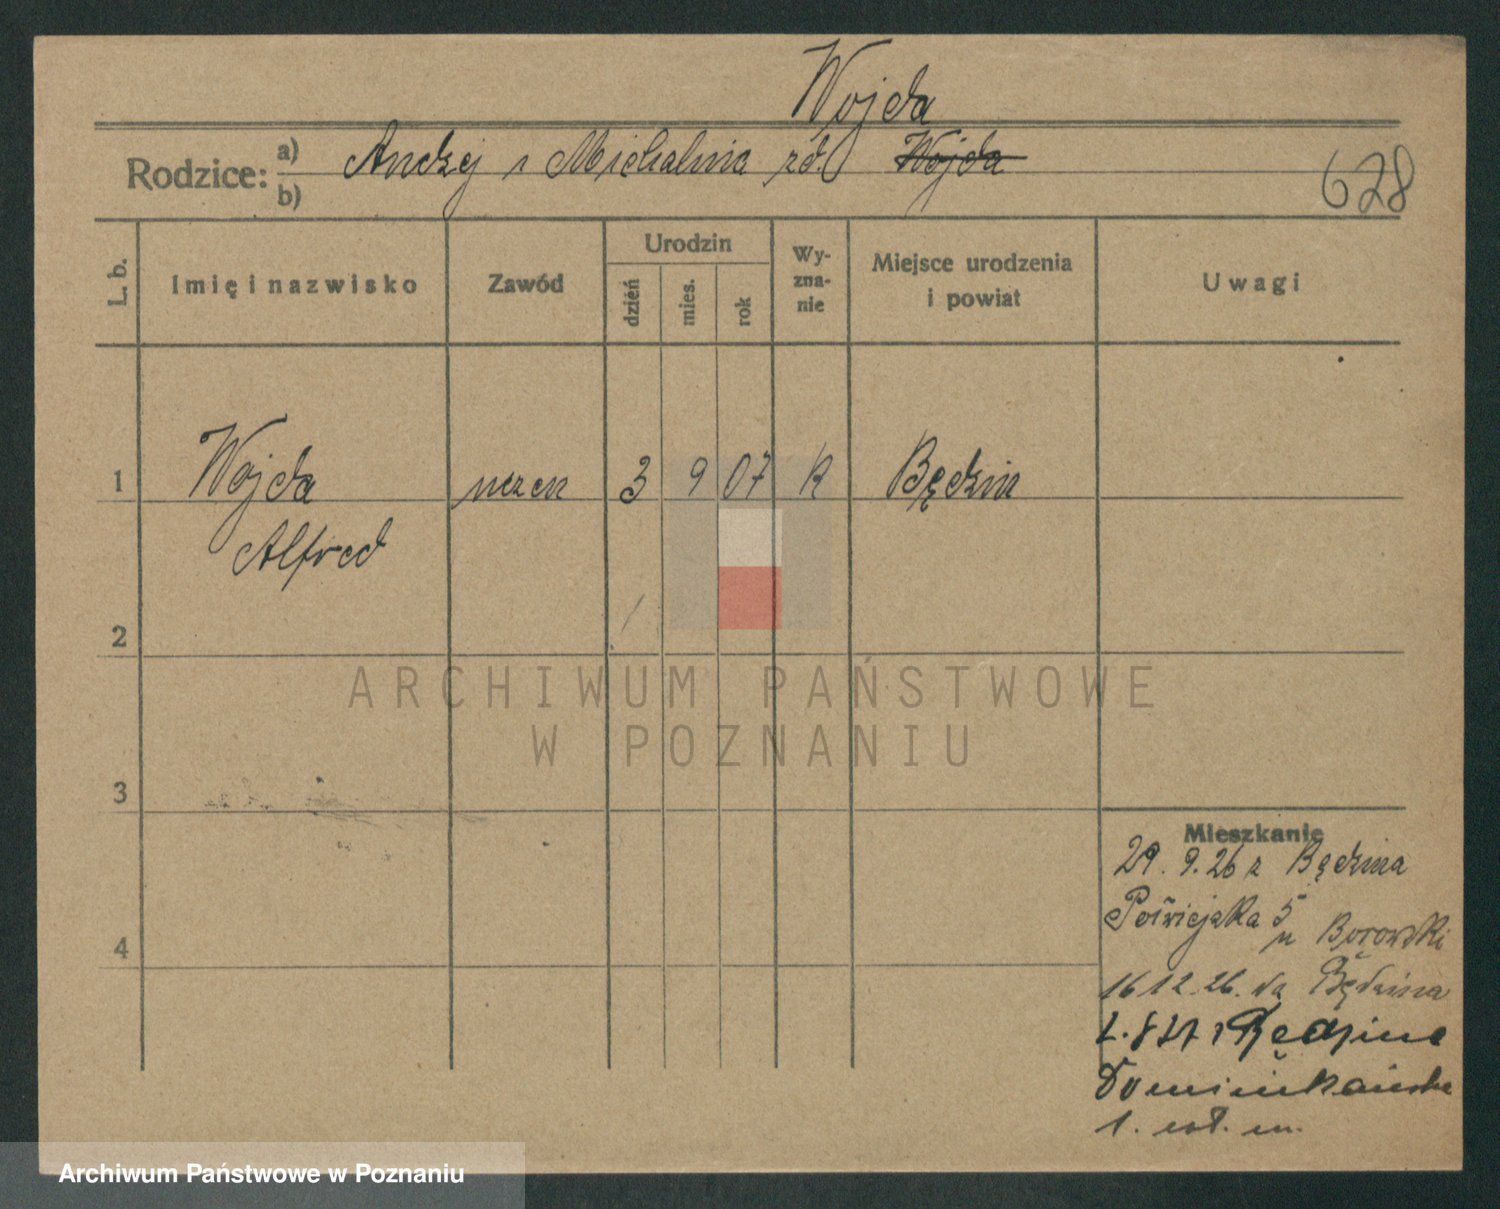 Wojda
Rodzice: a) Andrzej i Michalina zd. Wojda
b)
628
L. b. Imię i nazwisko Zawód Urodzin dzień mies. rok Wy-zna-nie Miejsce urodzenia i powiat Uwagi
1 Wojda uczeń 3 9 07 R Będzin
Alfred
2
ARCHIWUM PAŃSTWOWE
W POZNANIU
3
Mieszkanie
29. 9. 26 z Będzina
5
4 u Borowski
16 12. 26. do Będzina
Będzina
Dominikańska
1.
Archiwum Państwowe w Poznaniu